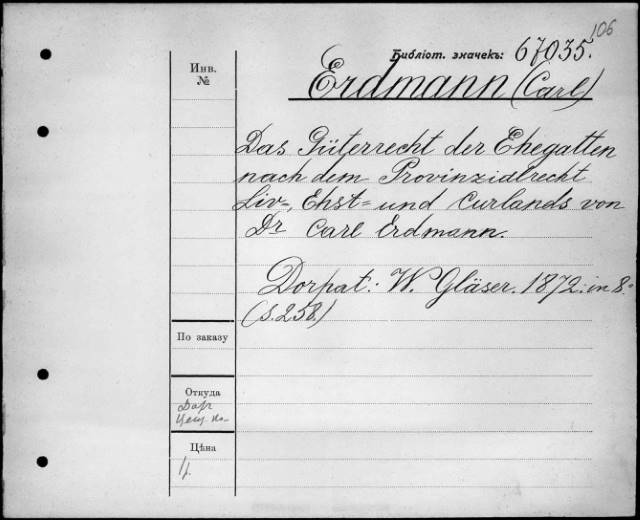 106
Библіот. значекъ: 67035.
Инв.
№
Erdmann (Carl)
Das Güterrecht der Ehegatten
nach dem Provinzialrecht
Liv=, Ehst= und Curlands von
Dr Carl Erdmann.
Dorpat: W. Gläser. 1872. in 8.°
(S. 258.)
По заказу
Откуда
Дар
Цѣна